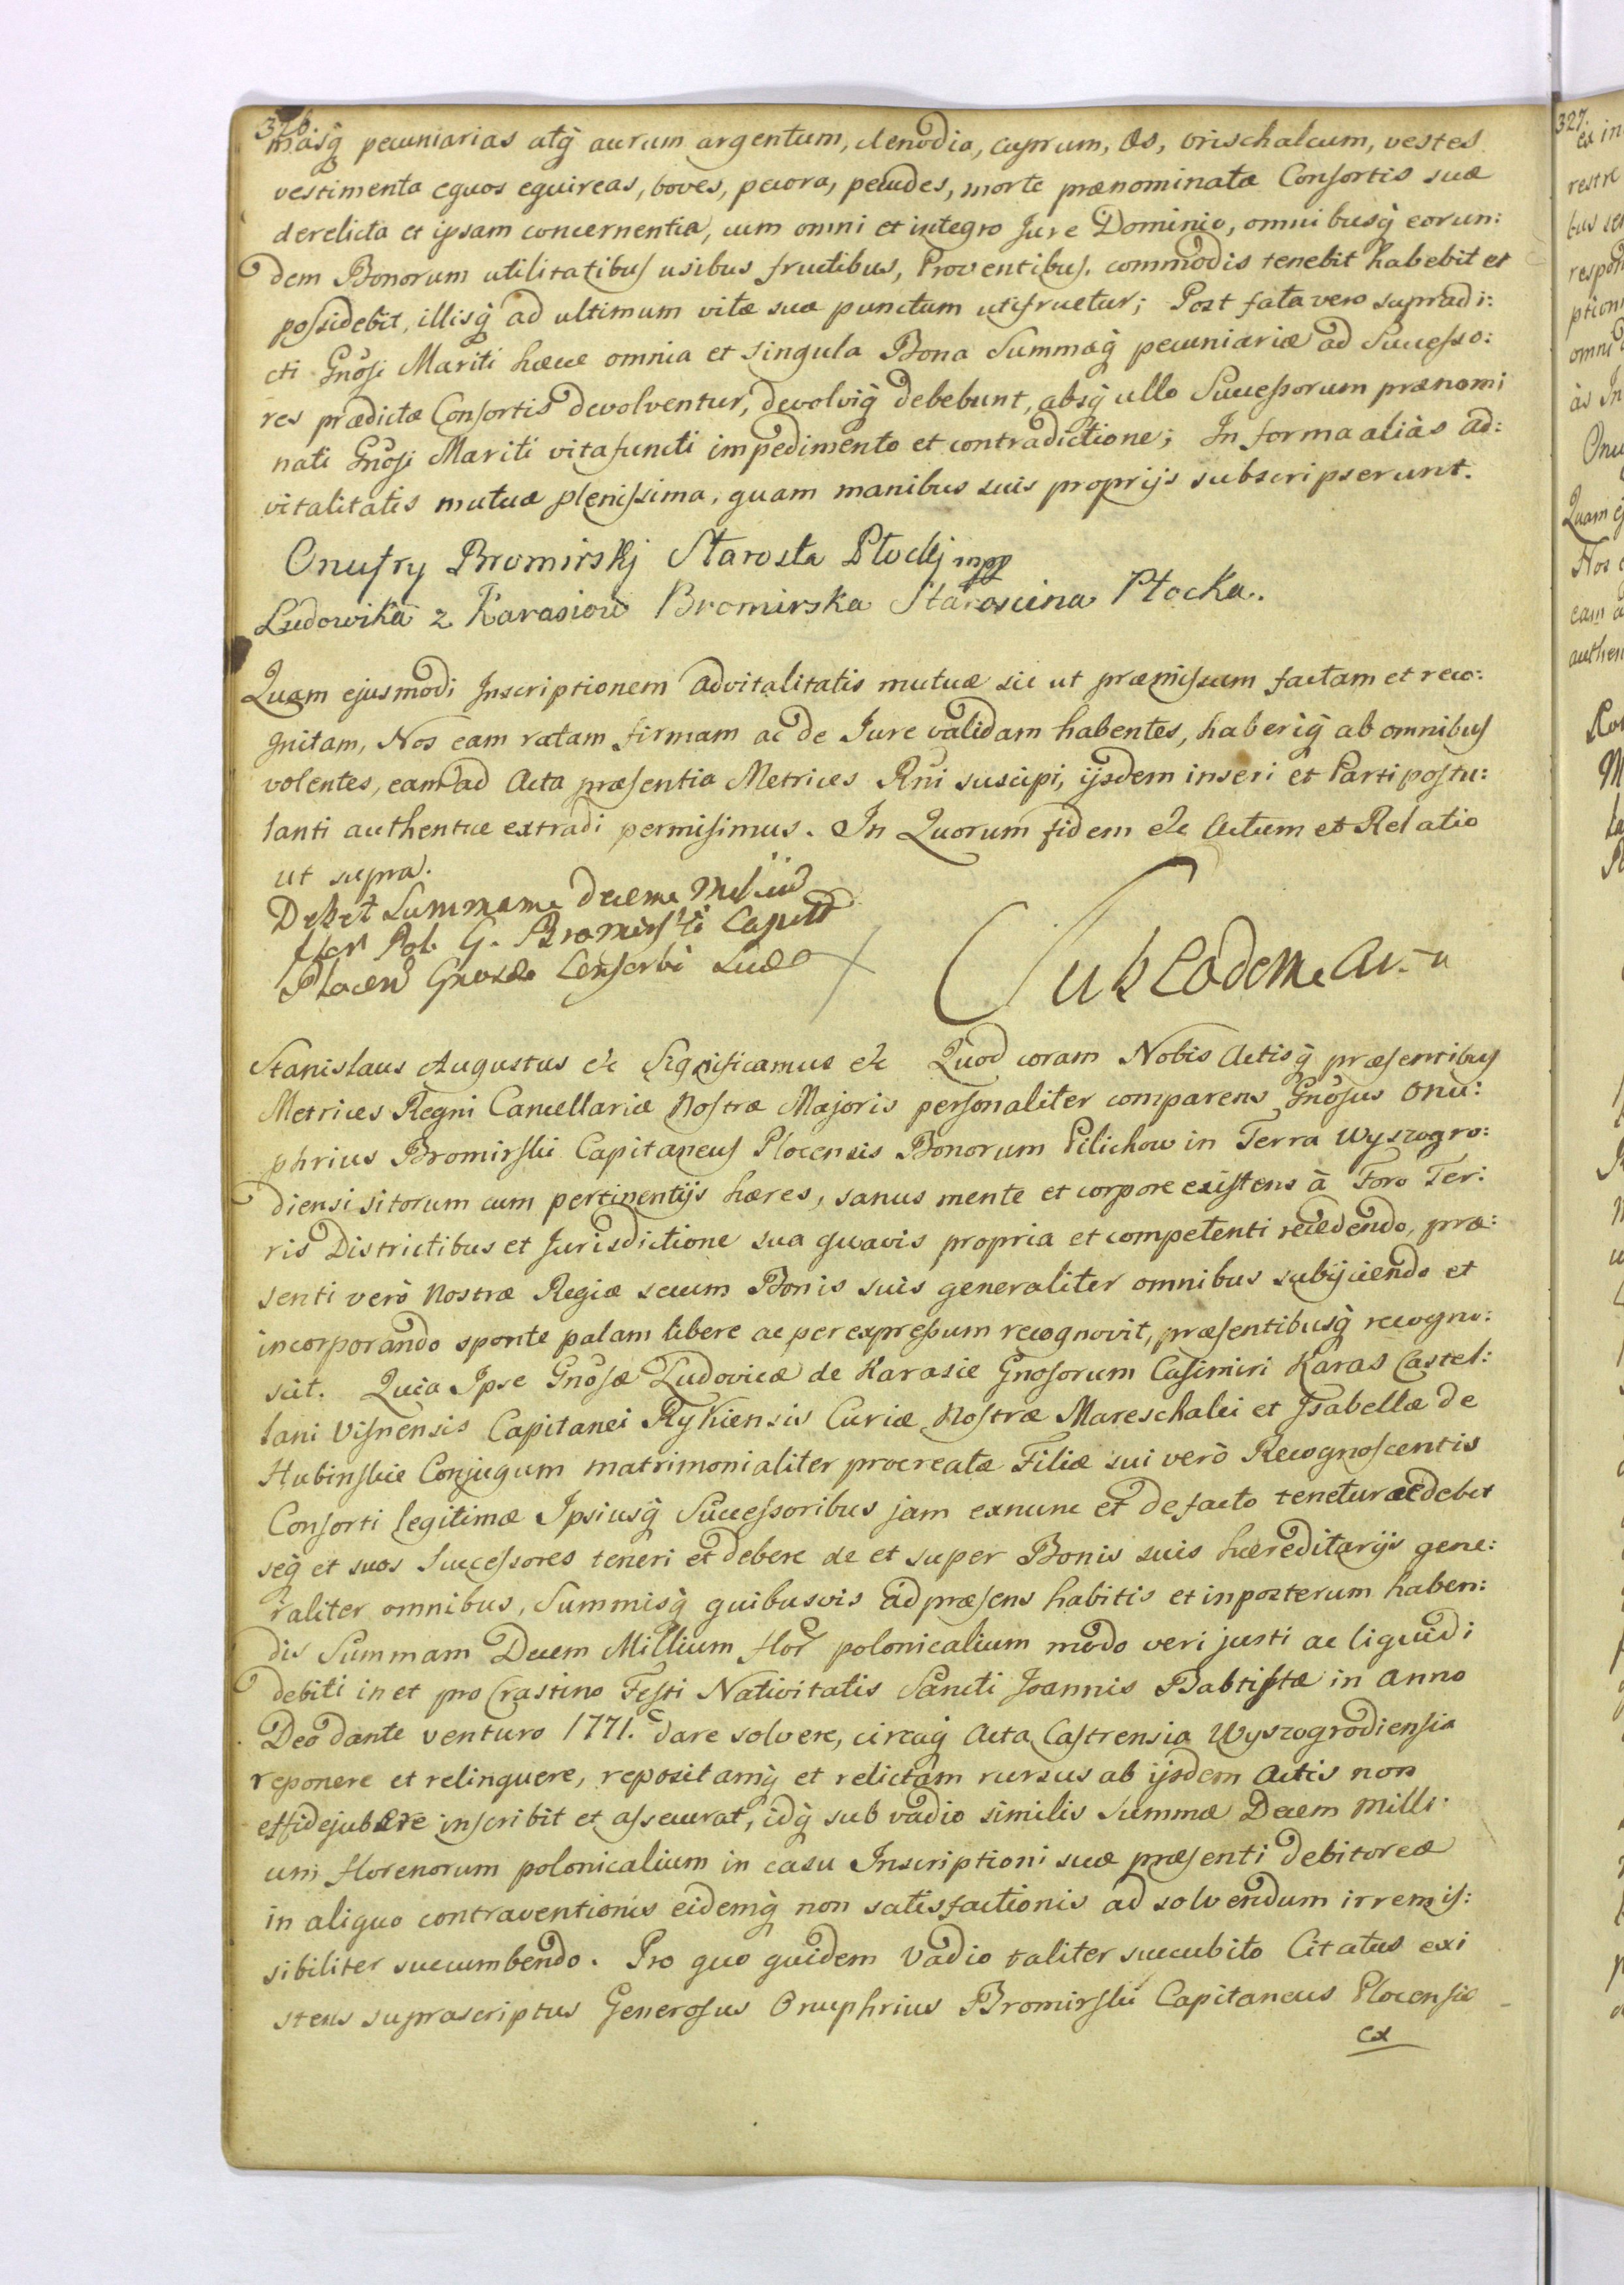 326
masq̃ pecuniarias atq̃ aurum argentum, clenodia, cuprum, æs, orischalcum, vestes
vestimenta equos equireas, boves, pecora, pecudes, morte prænominatæ Consortis suæ
derelicta et ipsam concernentia, cum omni et integro Jure Dominio, omnibusq̃ eorun:
dem Bonorum utilitatibus usibus fructibus, Proventibus, commodis tenebit habebit et
possidebit, illisq̃ ad ultimum vitæ suæ punctum utifruetur; Post fata vero supradi:
cti Gnosi Mariti hæcce omnia et singula Bona Summaq̃ pecuniariæ ad Successo:
res prædictæ Consortis devolventur, devolviq̃ debebunt, absq̃ ullo Successorum prænomi
nati Gnosi Mariti vitafuncti impedimento et contradictione; In forma aliàs ad:
vitalitatis mutuæ plenissima, quam manibus suis proprijs subscripserunt.
Onufry Bromirskj Starosta Płockj mpp
Ludowika z Karasiow Bromirska Staroscina Płocka.
Quam ejusmodi Inscriptionem advitalitatis mutuæ sic ut præmissum factam et reco:
gnitam, Nos eam ratam firmam ac de Jure validam habentes, haberiq̃ ab omnibus
volentes, eam ad Acta præsentia Metrices Rñi suscipi, ijsdem inseri et Parti postu:
lanti authentice extradi permisimus. In Quorum fidem &c Actum et Relatio
ut supra.
Debet Summam Decem Millium
flor Pol. G. Bromirski Capitt
Plocen Gnosæ Consorti Suæ
Sub Eodem Actu
Stanislaus Augustus &c Significamus &c Quod coram Nobis Actisq̃ præsentibus
Metrices Regni Cancellariæ Nostræ Majoris personaliter comparens Gnosus Onu:
phrius Bromirski Capitaneus Plocensis Bonorum Pilichow in Terra Wyszogro:
diensi sitorum cum pertinentijs hæres, sanus mente et corpore existens à Foro Ter:
ris Districtibus et Jurisdictione sua quavis propria et competenti recedendo, præ:
senti verò Nostræ Regiæ secum Bonis suis generaliter omnibus subijciendo et
incorporando sponte palam libere ac per expressum recognovit, præsentibusq̃ recogno:
scit. Quia Ipse Gnosæ Ludovicæ de Karasie Gnosorum Casimiri Karas Castel:
lani Visnensis Capitanei Rykiensis Curiæ Nostræ Mareschalci et Isabellæ de
Hubinskie Conjugum matrimonialiter procreatæ Filiæ sui verò Recognoscentis
Consorti legitimæ Ipsiusq̃ Successoribus jam exnunc et de facto tenetur ac debet
seq̃ et suos Successores teneri et debere de et super Bonis suis hæreditarijs gene:
raliter omnibus, Summisq̃ quibusvis ad præsens habitis et inposterum haben:
dis Summam Decem Millium flor polonicalium modo veri justi ac liquidi
debiti in et pro Crastino Festi Nativitatis Sancti Joannis Babtistæ in anno
Deo dante venturo 1771. dare solvere, circaq̃ Acta Castrensia Wyszogrodiensia
reponere et relinquere, repositamq̃ et relictam rursus ab ijsdem Actis non
effidejubere inscribit et assecurat, idq̃ sub vadio similis Summæ Decem Milli:
um florenorum polonicalium in casu Inscriptioni suæ præsenti debitoreæ
in aliquo contraventionis eidemq̃ non satisfactionis ad solvendum irremis:
sibiliter succumbendo. Pro quo quidem Vadio taliter succubito Citatus exi
stens suprascriptus Generosus Onuphrius Bromirski Capitaneus Plocensis
ex
327.